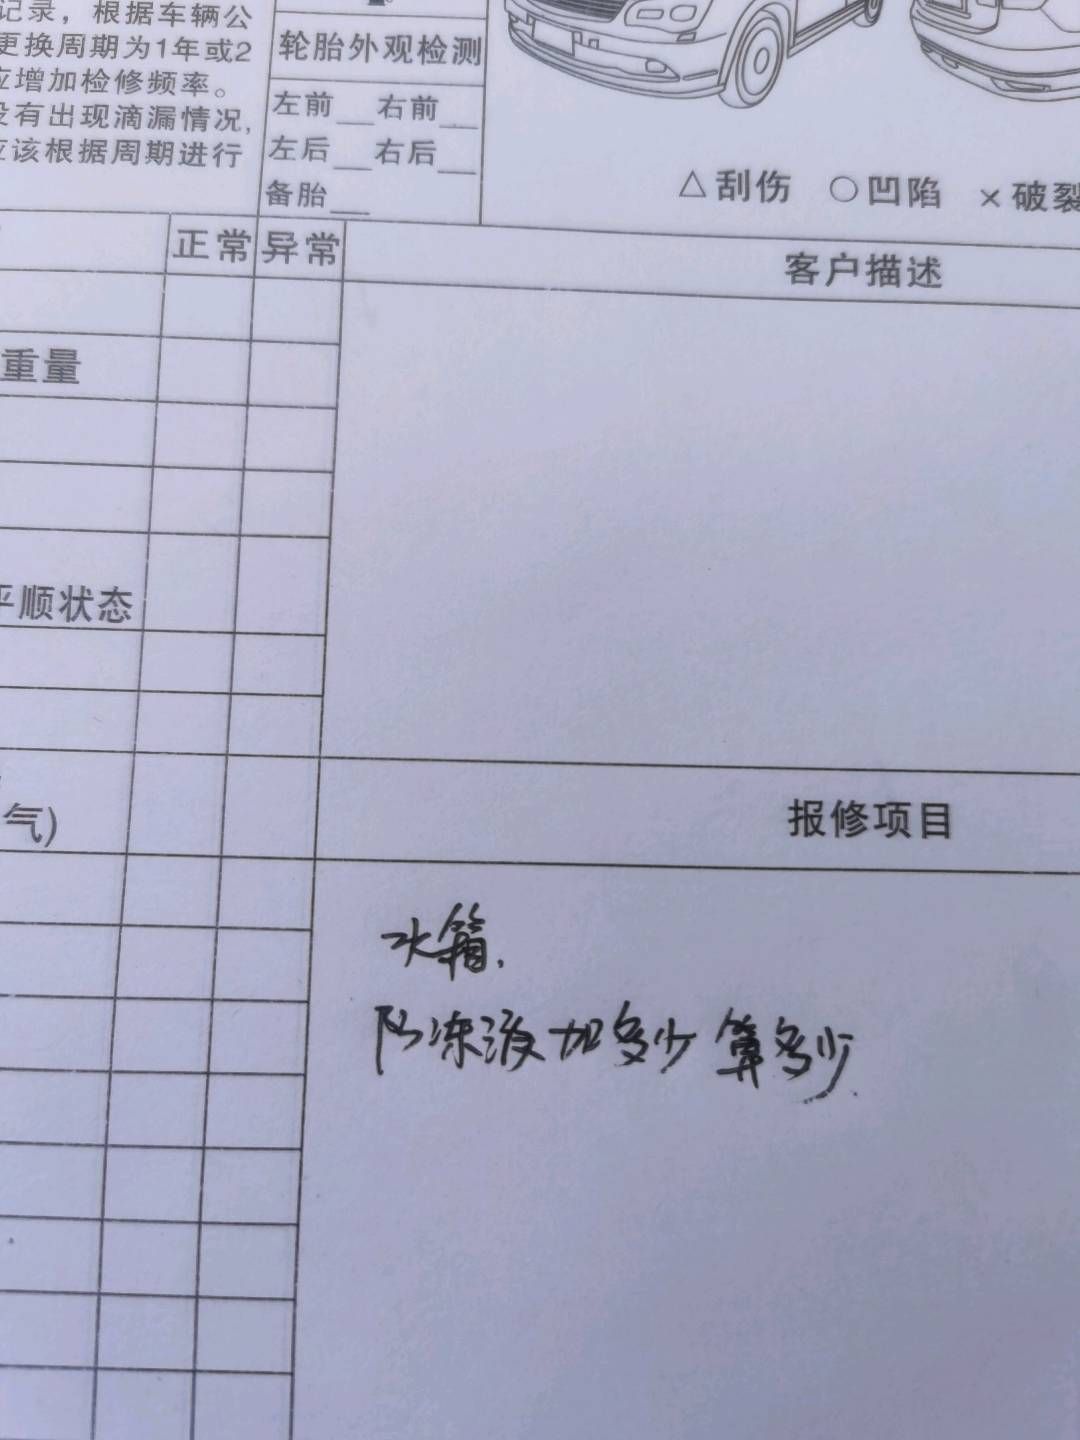 记录，根据车辆公
更换周期为1年或2
应增加检修频率。
没有出现滴漏情况，
应该根据周期进行
轮胎外观检测
左前__右前__
左后__右后__
备胎__
△刮伤 ○凹陷 ×破裂
正常 异常 客户描述
重量
平顺状态
气)
报修项目
水箱.
防冻液加多少算多少